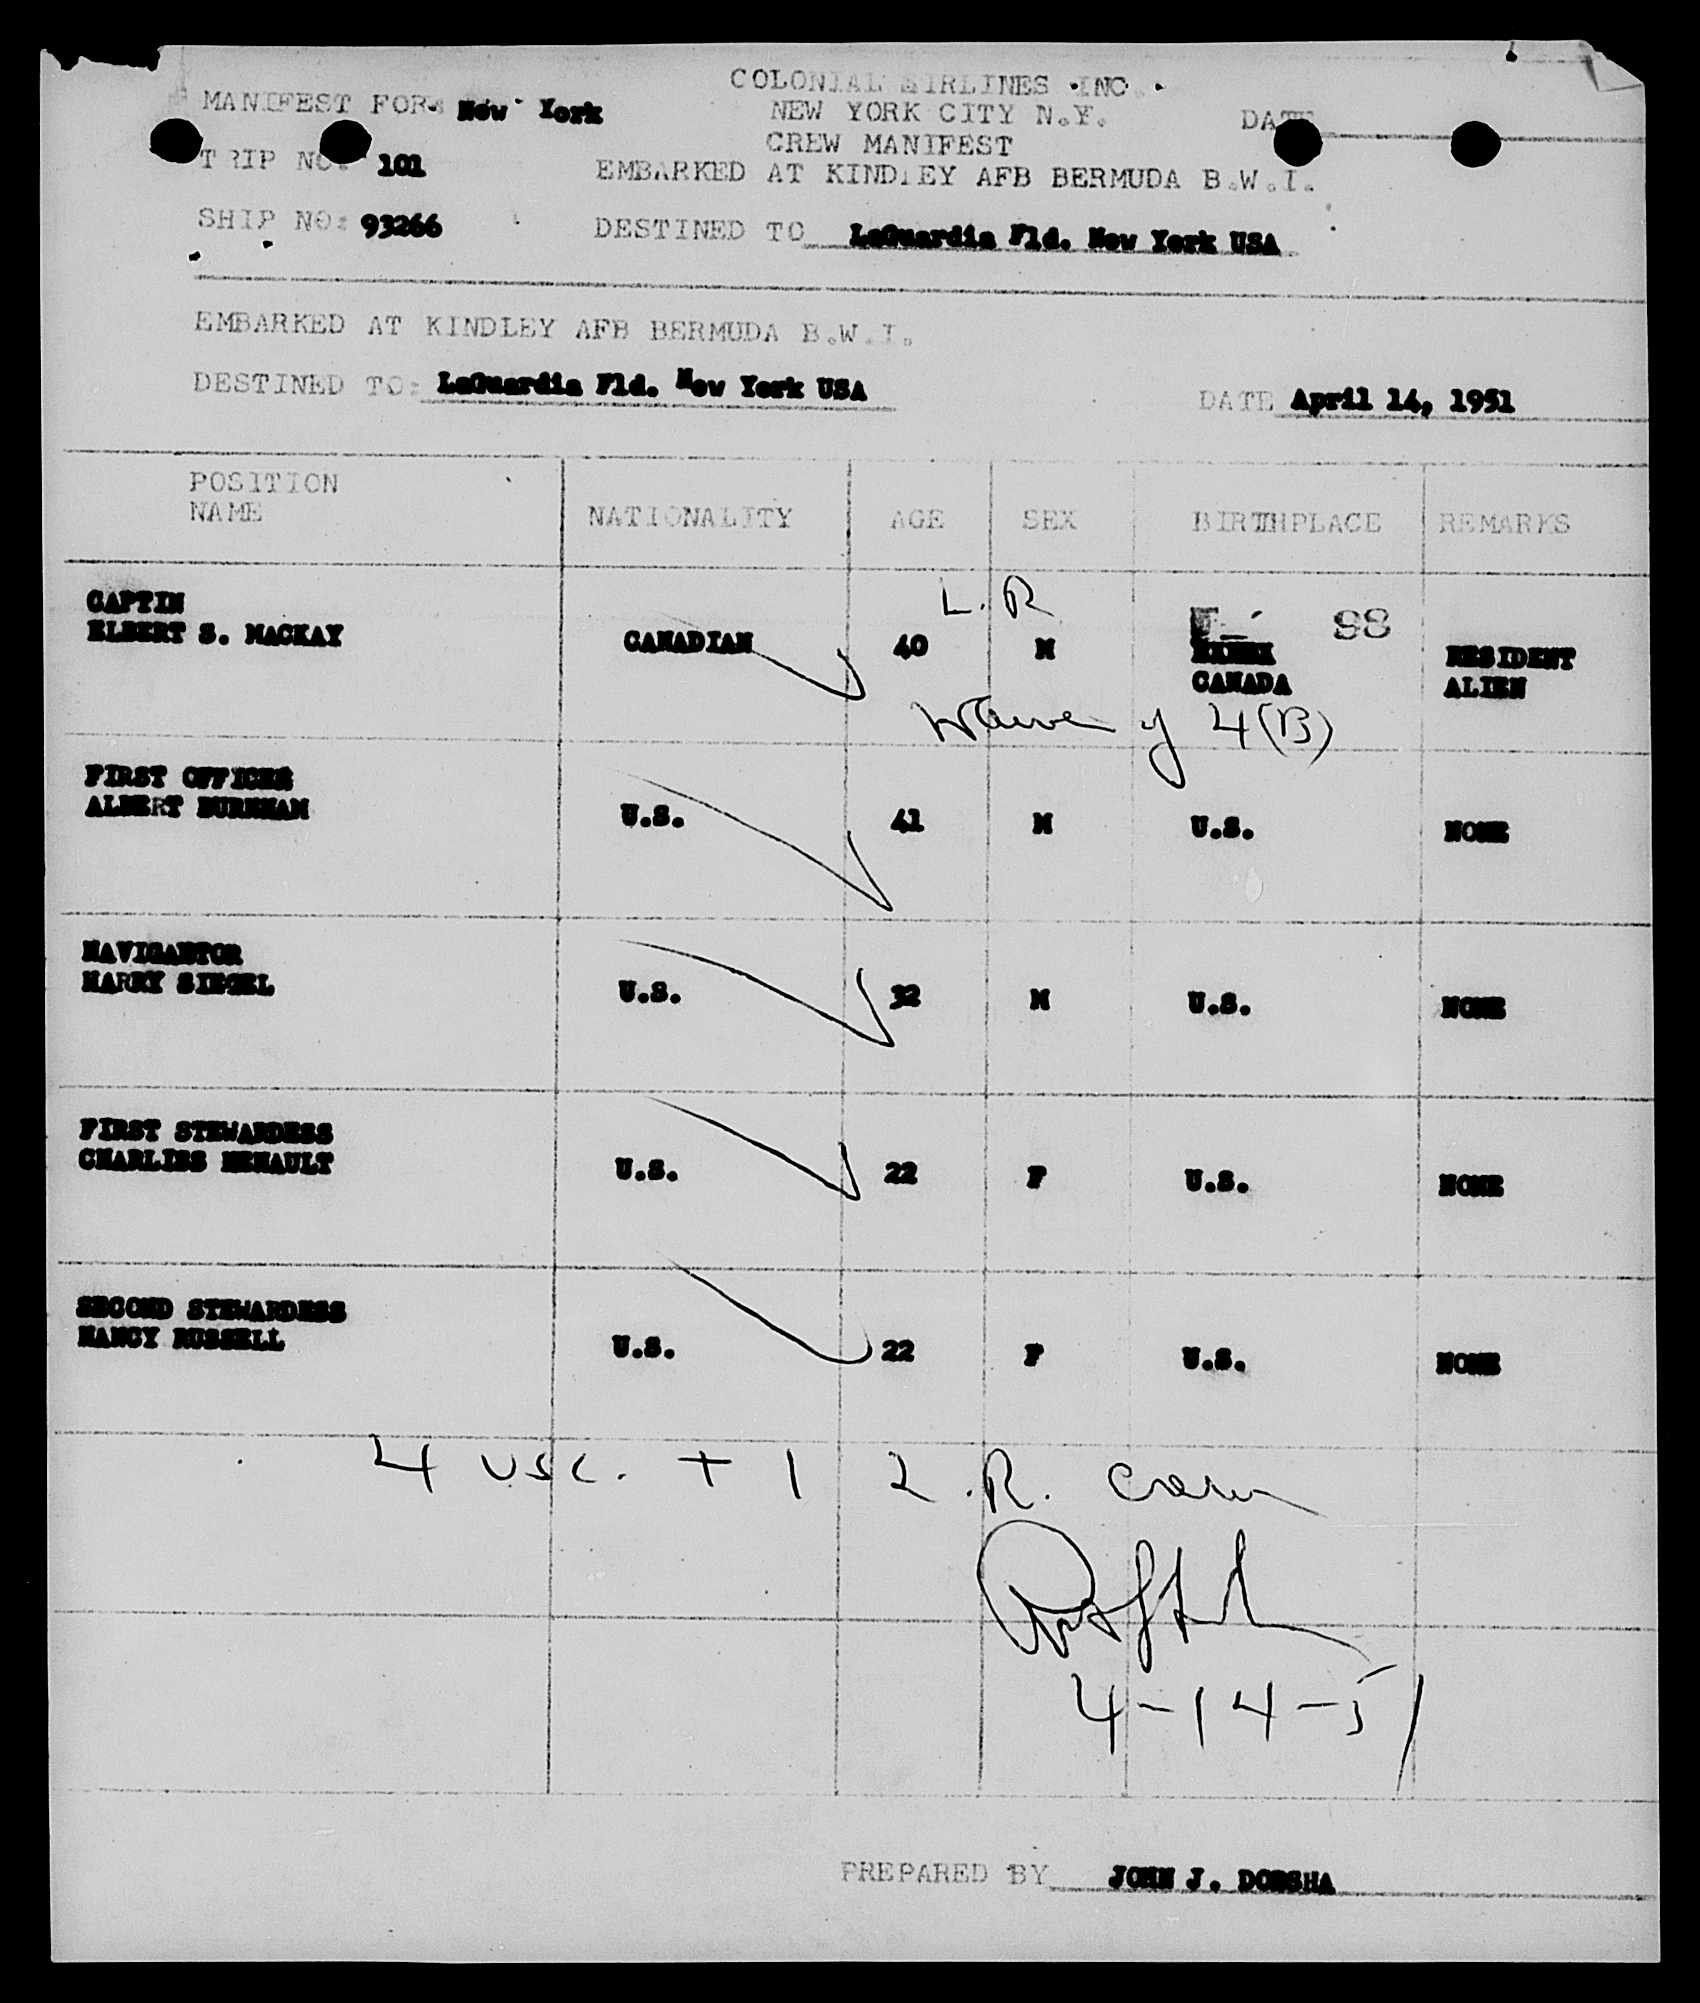 COLONIAL AIRLINES INC.
MANIFEST FOR: New York
NEW YORK CITY N.Y.
DATE
CREW MANIFEST
TRIP NO: 101
EMBARKED AT KINDLEY AFB BERMUDA B.W.I.
SHIP NO: 93266
DESTINED TO LaGuardia Fld. New York USA
EMBARKED AT KINDLEY AFB BERMUDA B.W.I.
DESTINED TO: LaGuardia Fld. New York USA
DATE April 14, 1951
POSITION
NAME NATIONALITY AGE SEX BIRTHPLACE REMARKS
L. R
98
CAPTIN
ELBERT S. MACKAY CANADIAN 40 M CANADA RESIDENT ALIEN
Waiver of 4(B)
FIRST OFFICER
ALBERT BURNHAM U.S. 41 M U.S. NONE
NAVIGANTOR
HARRY SIEGEL U.S. 32 M U.S. NONE
FIRST STEWARDESS
CHARLISS U.S. 22 F U.S. NONE
SECOND STEWARDESS
NANCY RUSSELL U.S. 22 F U.S. NONE
4 USC. + 1 L.R. Crew
4-14-51
PREPARED BY JOHN J. DORSHA